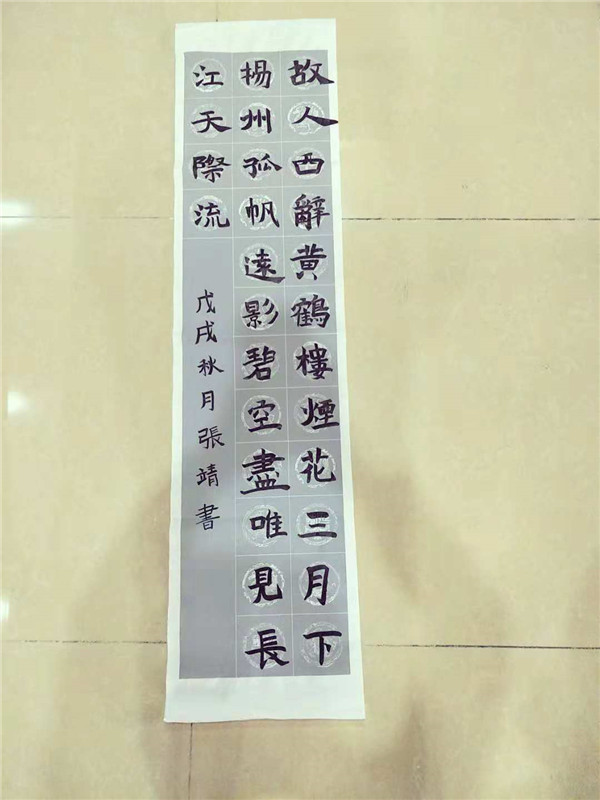 故人西辭黃鶴樓煙花三月下
揚州孤帆遠影碧空盡唯見長
江天際流
戊戌秋月張靖書